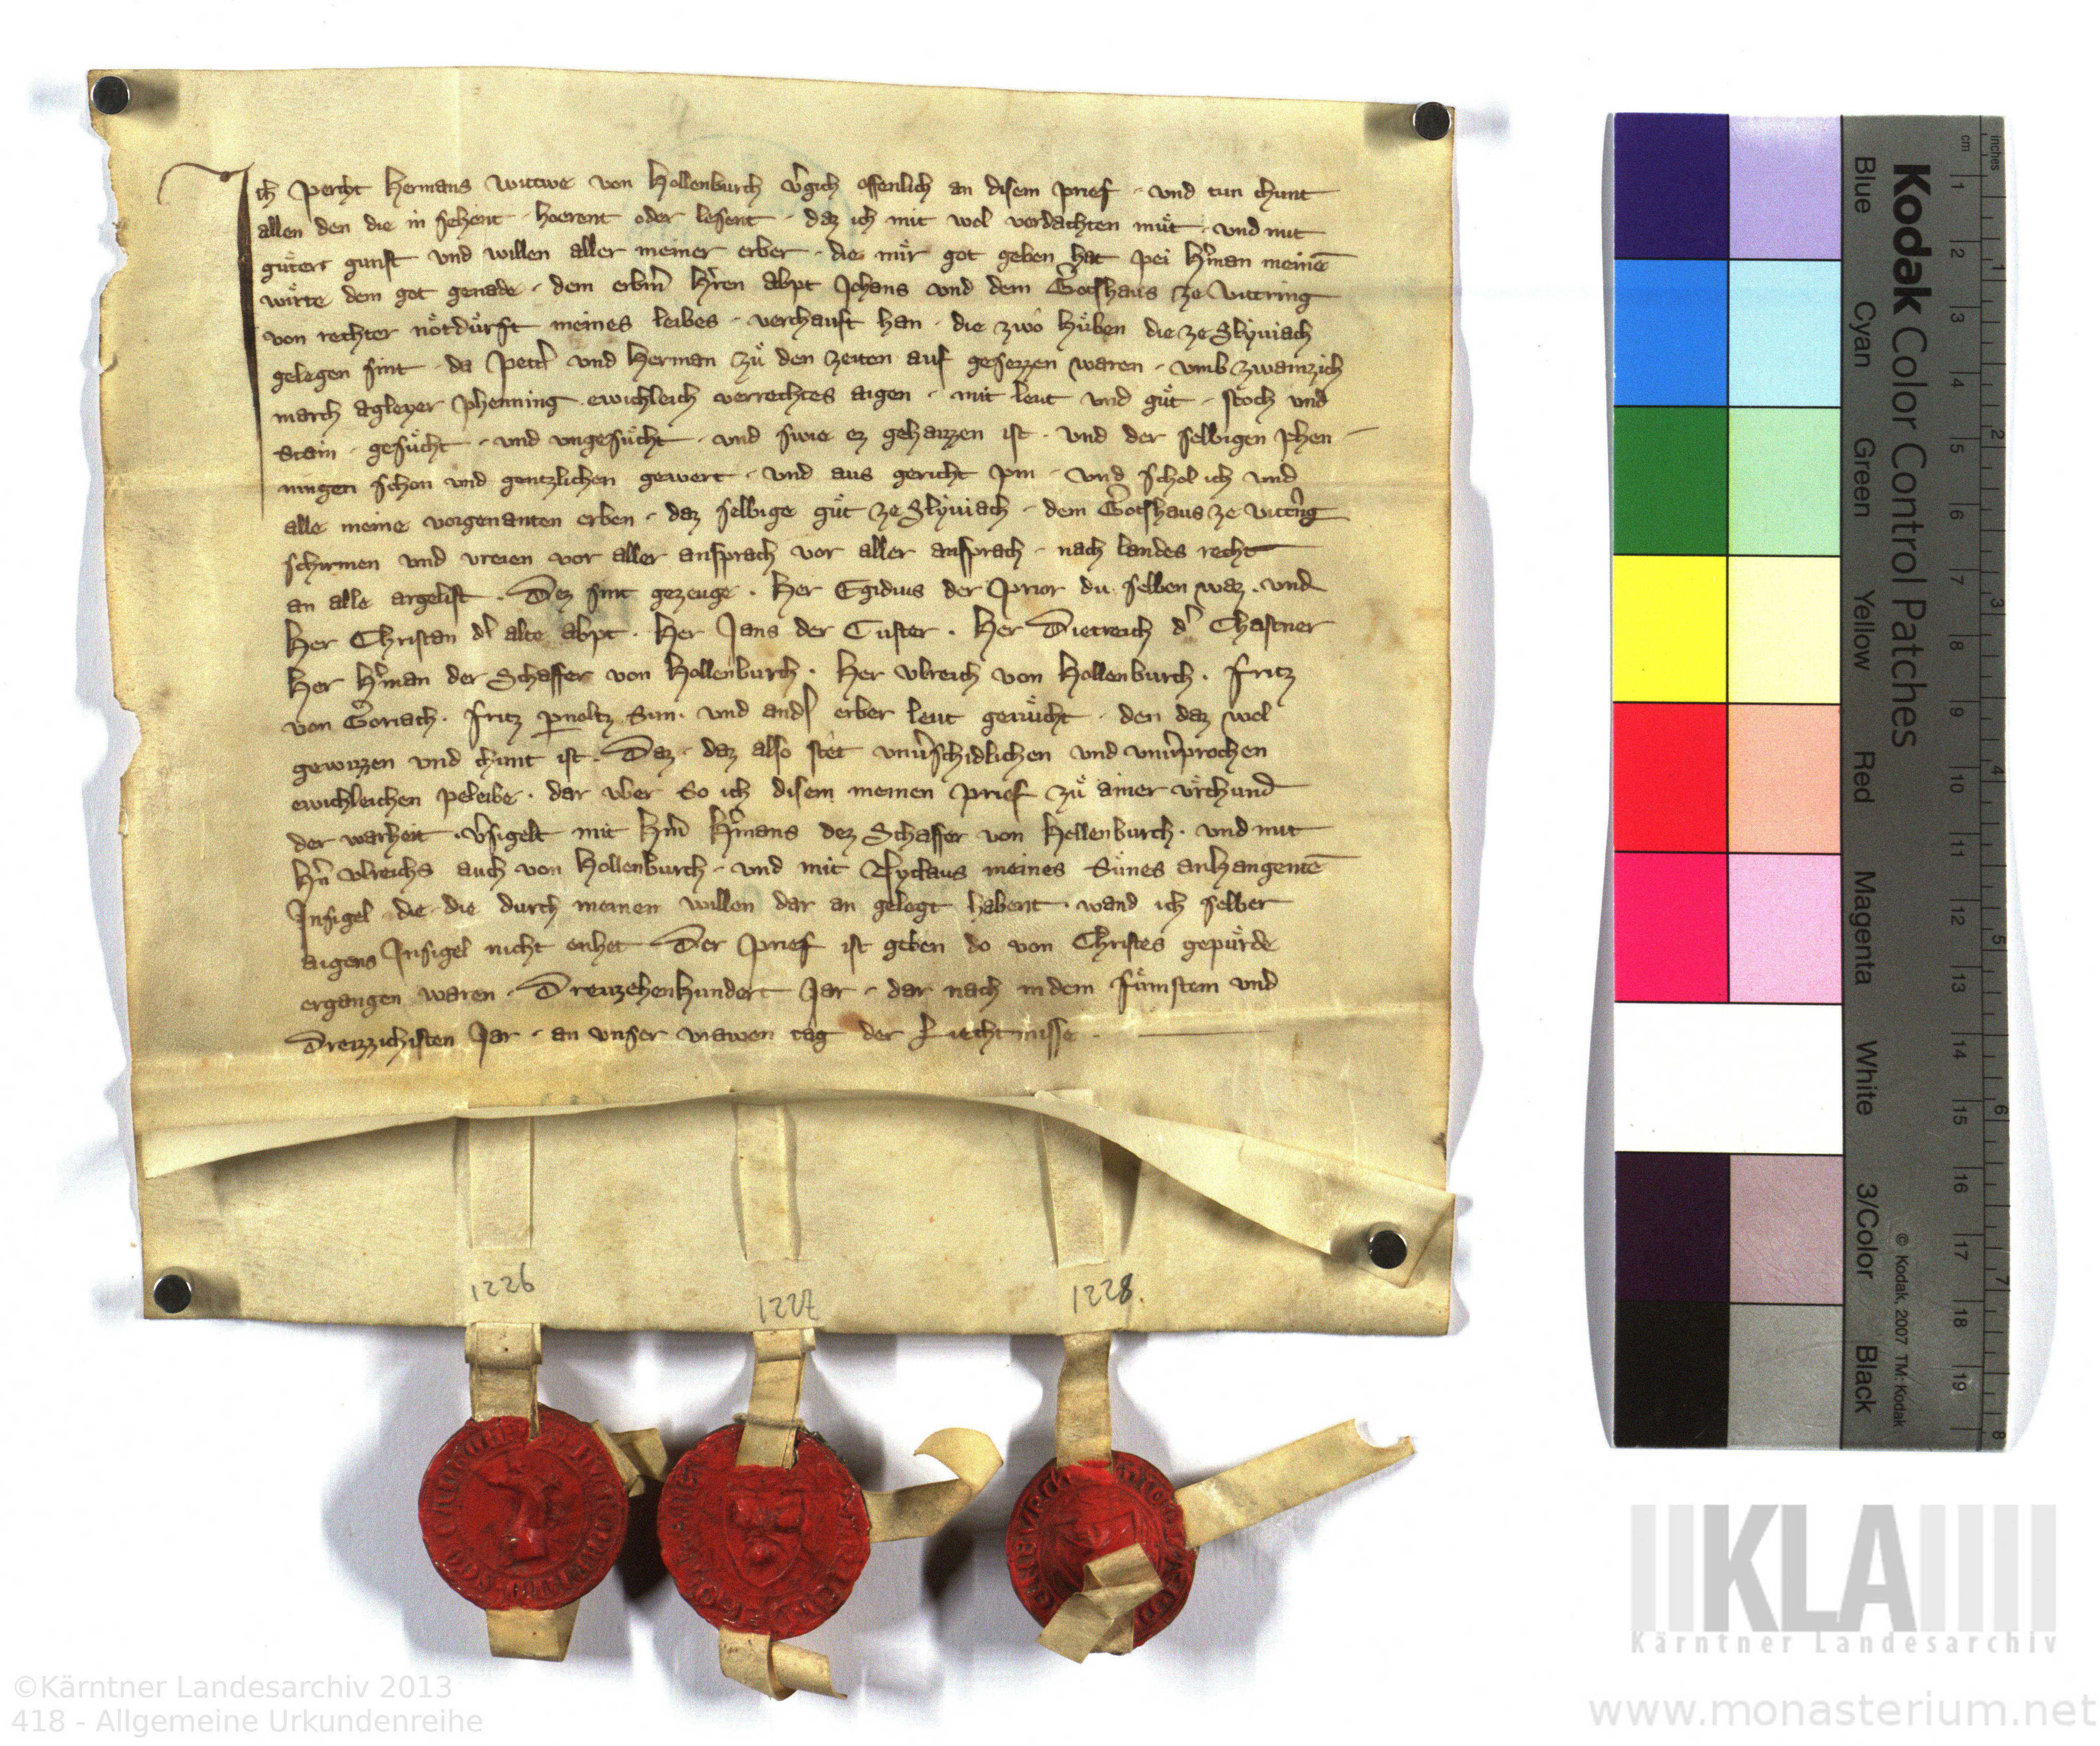 Ich percht hermans wittwe von Hollenburch v̉gich offenlich an disem prief · vnd tun chunt
allen den die in sehent · hoerent oder lesent · daz ich mit wol verdachten mu̍t · vnd mit
gu̍ter gunst vnd willen aller meiner erber · die mir got geben hat pei H̉man meinē
wirte dem got genade · dem erbm̉ H̉ren abpt Johans vnd dem Gotshaus ze Victring
von rechter nȯtdu̍rft meines leibes · verchauft han · die zwo hu̍ben die ze Slyviach
gelegen sint · da pett̉ vnd Herman zu̍ den zeiten auf gesezzen waren · vmb zwainzich
march agleyer phenning ewichleich verrechtes aigen · mit leut vnd gu̍t · stoch vnd
stain · gesu̍cht · vnd vngesu̍cht · vnd swie ez gehaizzen ist · vnd der selbigen phen
ningen schon vnd gentzlichen gewert · vnd aus gericht pin · vnd schol ich vnd
alle meine vorgenanten erben · daz selbige gu̍t ze Slyviach · dem Gotshaus ze victn̉g
schirmen vnd vreien vor aller ansprach vor aller ansprach · nach landes recht
an alle argelist · Dez sint gezeuge · Her Egidius der Prior du selben waz · vnd
Her Christan d̉ alte abpt · Her Jans der Custer · Her Dietreich d̉ Chastner
Her H̉man der Schaffer von Hollenburch · Her vlreich von Hollenburch · Fritz
von Goriach · Fritz Sun · vnd and̉ erber leut genu̍cht · den daz wol
gewizzen vnd chunt ist · Daz · daz also stet vnuˀschidlichen vnd vnuˀprochen
ewichleichen peleibe · dar vber So ich disem meinen prief zu̍ ainer vrchund
der warheit · v̉sigelt mit Hm̉ H̉mans dez Schaffer von Hollenburch · vnd mit
Hn̉ vlreichs auch von Hollenburch · vnd mit Nyclaus meines Su̍nes anhangentē
Insigel die die durch meinen willen dar an gelegt habent · wand ich selber
aigens Insigel nicht enhet Der prief ist geben do von Christes gepu̍rde
ergangen waren · Dreuzehenhundert Jar · dar nach in dem fu̍mstem vnd
Dreizzichisten Jar · an vnser vrawen tag der Liechtmisse ·
1226 1227 1228.
Kodak Color Control Patches
Blue Cyan Green Yellow Red Magenta White 3/Color Black
© Kodak, 2007 TM: Kodak
inches 1 2 3 4 5 6 7 8
cm 1 2 3 4 5 6 7 8 9 10 11 12 13 14 15 16 17 18 19
KLA
Kärntner Landesarchiv
©Kärntner Landesarchiv 2013
418 - Allgemeine Urkundenreihe
www.monasterium.net